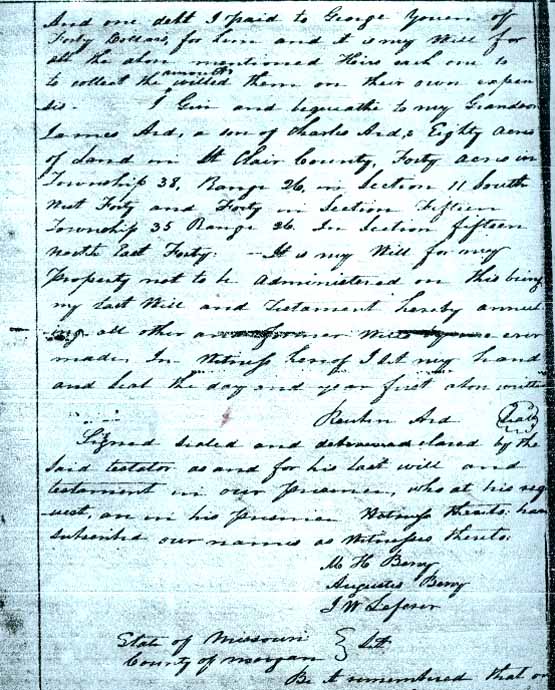 And one debt I paid to George Youen of
Forty Dollars, for him and it is my Will for
all the abov mentioned Heirs each one to
to collect the amounts willed them on their own expen
sis. I Give and bequeathe to my Grandson
James Ard, a son of Charles Ard, Eighty acres
of Land in St Clair County, Forty acres in
Township 38, Range 26, in Section 11 South
West Forty and Forty in Section Fifteen
Township 35 Range 26. In Section fifteen
North East Forty. - It is my Will for my
Property not to be administered on this being
my Last Will and Testament hereby annul
ing all other and former Wills by me ever
made. In Witness herof I set my hand
and seal the day and year first abov written
Reuben Ard Seal
Signed sealed and declared by the
said testator as and for his Last will and
testament in our presence, who at his req
uest, an in his presence Witness thereto: have
subscribed our names as Witnesses thereto:
M H Berry
Augustus Berry
J W
State of Missouri
County of Morgan } Sct
Be it remembered that on